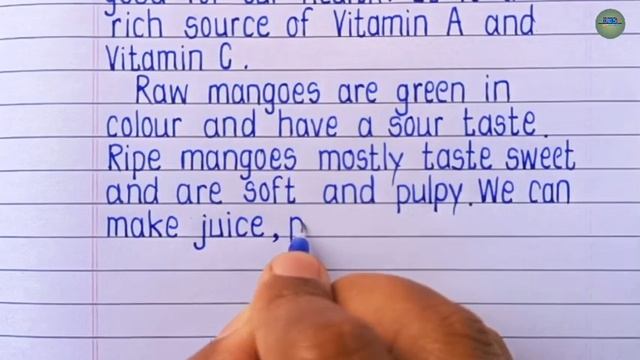 rich source of Vitamin A and
Vitamin C.
Raw mangoes are green in
colour and have a sour taste.
Ripe mangoes mostly taste sweet
and are soft and pulpy. We can
make juice,